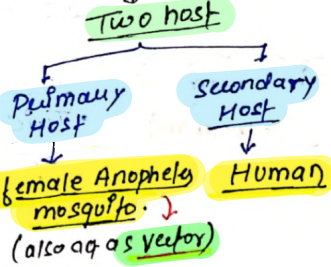 Two host
Primary
Host
Secondary
Host
female Anopheles
mosquito.
Human
(also act as vector)